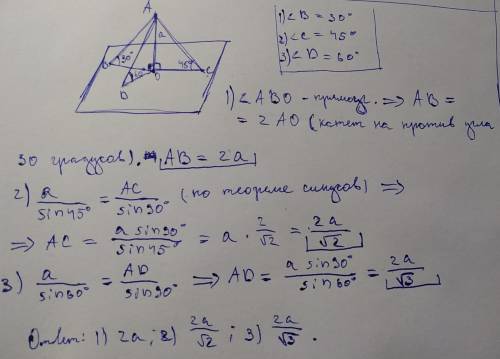 A
a
B
30°
60°
45°
O
C
D
1) ∠B = 30°
2) ∠C = 45°
3) ∠D = 60°
1) ∠ABO - прямоуг. => AB =
= 2AO (катет на против угла
30 градусов). AB = 2a
2) a/sin45° = AC/sin90° (по теореме синусов) =>
=> AC = a sin90°/sin45° = a · 2/√2 = 2a/√2
3) a/sin60° = AD/sin90° => AD = a sin90°/sin60° = 2a/√3
Ответ: 1) 2a ; 2) 2a/√2 ; 3) 2a/√3 .